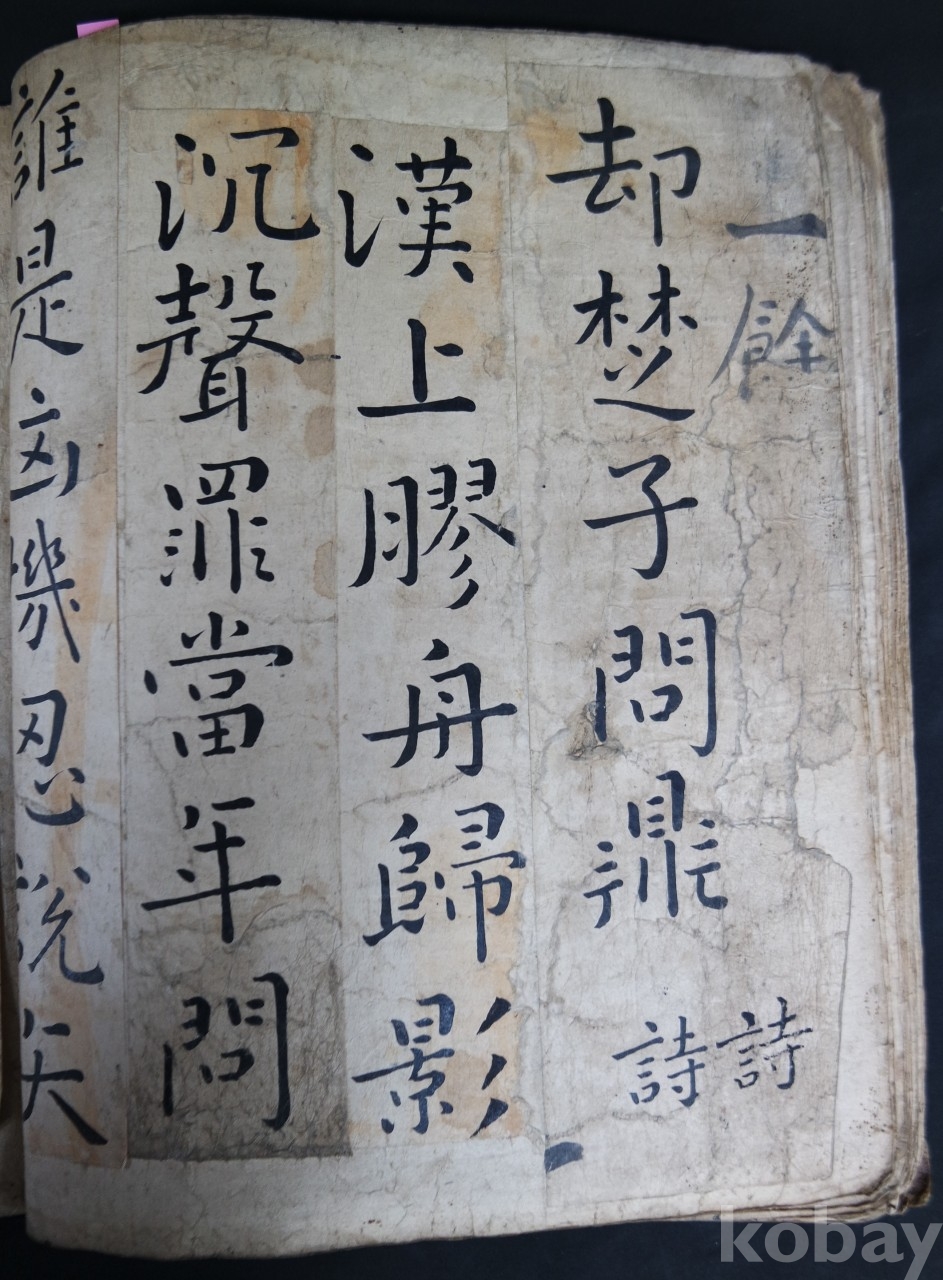 一餘 詩
却楚子問鼎 詩
漢上膠舟歸影
沉聲罪當年問
誰是機忍說
kobay